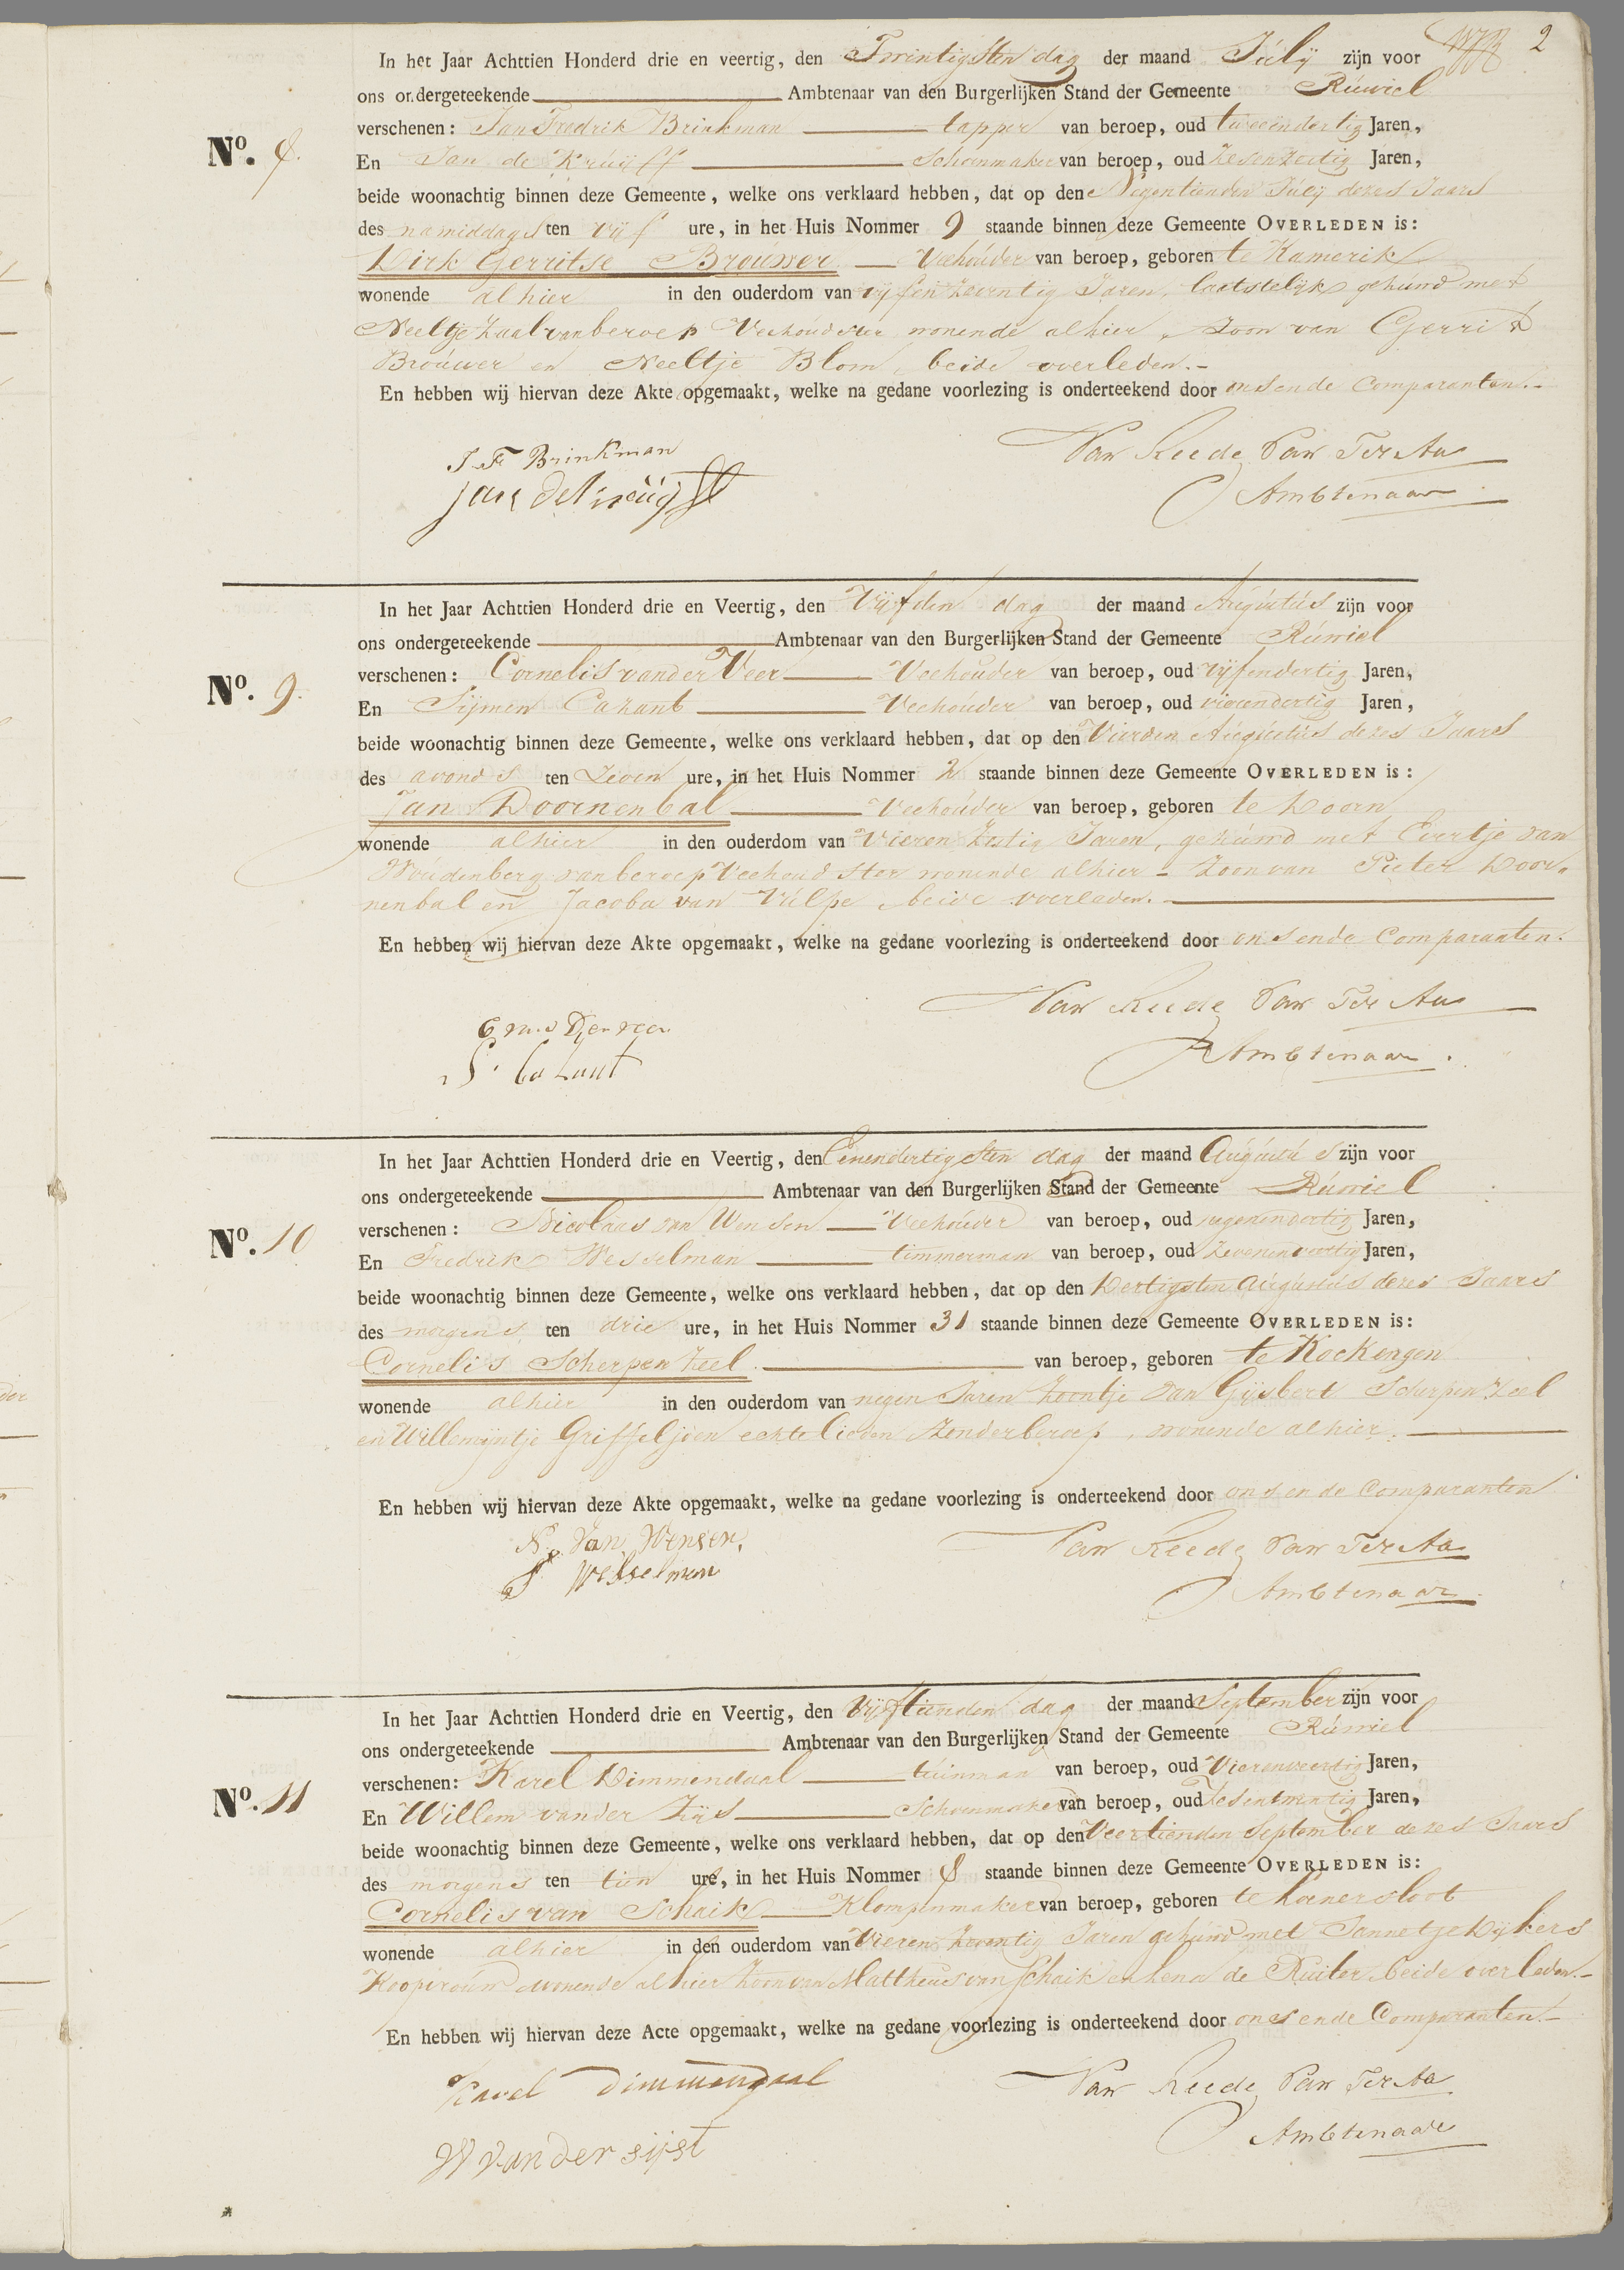 2
In het Jaar Achttien Honderd drie en veertig, den Twintigsten dag der maand Julij zijn voor
ons ondergeteekende Ambtenaar van den Burgerlijken Stand der Gemeente Ruwiel
verschenen: Jan Fredrik Brinkman tapper van beroep, oud tweeendertig Jaren,
No. 8.
En Jan de Kruijff Schoenmaker van beroep, oud Jaren,
beide woonachtig binnen deze Gemeente, welke ons verklaard hebben, dat op den Negentienden Julij dezes Jaars
des namiddags ten vijf ure, in het Huis Nommer 9 staande binnen deze Gemeente OVERLEDEN is:
Dirk Gerritse Brouwer Veehouder van beroep, geboren te Kamerik
wonende alhier in den ouderdom van vijfenzeventig Jaren, laatstelijk gehuwd met
Neeltje Zaal van beroep Veehoudster wonende alhier, Zoon van Gerrit
Brouwer en Neeltje Blom, beide overleden.-
En hebben wij hiervan deze Akte opgemaakt, welke na gedane voorlezing is onderteekend door ons en de Comparanten.-
J. F Brinkman
Van Reede Van Ter Aa
Jan de Kruijff
Ambtenaar
In het Jaar Achttien Honderd drie en Veertig, den Vijfden dag der maand Augustus zijn voor
ons ondergeteekende Ambtenaar van den Burgerlijken Stand der Gemeente Ruwiel
verschenen: Cornelis van der Veer Veehouder van beroep, oud vijfendertig Jaren,
No. 9.
En Sijmen Cazant Veehouder van beroep, oud vierendertig Jaren,
beide woonachtig binnen deze Gemeente, welke ons verklaard hebben, dat op den Vierden Augustus dezes Jaars
des avonds ten Zeven ure, in het Huis Nommer 2 staande binnen deze Gemeente OVERLEDEN is:
Jan Doornenbal Veehouder van beroep, geboren te Doorn
wonende alhier in den ouderdom van Vieren Zestig Jaren, gehuwd met Evertje van
Woudenberg van beroep Veehoudster wonende alhier - Zoon van Pieter Door-
nenbal en Jacoba van Vulpe, beide overleden.
En hebben wij hiervan deze Akte opgemaakt, welke na gedane voorlezing is onderteekend door ons en de Comparanten.
Van Reede Van Ter Aa
S. Cazant
Ambtenaar.
In het Jaar Achttien Honderd drie en Veertig, den Eenendertigsten dag der maand Augustus zijn voor
ons ondergeteekende Ambtenaar van den Burgerlijken Stand der Gemeente Ruwiel
verschenen: Nicolaas van Wensen Veehouder van beroep, oud negenendertig Jaren,
No. 10
En Fredrik Wesselman timmerman van beroep, oud Zevenenveertig Jaren,
beide woonachtig binnen deze Gemeente, welke ons verklaard hebben, dat op den Dertigsten Augustus dezes Jaars
des morgens ten drie ure, in het Huis Nommer 31 staande binnen deze Gemeente OVERLEDEN is:
Cornelis Scherpenzeel van beroep, geboren te Kockengen
wonende alhier in den ouderdom van negen Jaren Zoontje van Gijsbert Scherpenzeel
en Willemijntje Griffeljoen echtelieden Zonder beroep, wonende alhier.
En hebben wij hiervan deze Akte opgemaakt, welke na gedane voorlezing is onderteekend door ons en de Comparanten
N. Van Wensen.
Van Reede Van Ter Aa
F. Wesselman
Ambtenaar
In het Jaar Achttien Honderd drie en Veertig, den Vijftienden dag der maand September zijn voor
ons ondergeteekende Ambtenaar van den Burgerlijken Stand der Gemeente Ruwiel
verschenen: Karel Dimmendaal tuinman van beroep, oud Vierenveertig Jaren,
No. 11
En Willem van der Zijs Schoenmaker van beroep, oud Zesentwintig Jaren,
beide woonachtig binnen deze Gemeente, welke ons verklaard hebben, dat op den Veertienden September dezes Jaars
des morgens ten tien ure, in het Huis Nommer 8 staande binnen deze Gemeente OVERLEDEN is:
Cornelis van Schaik Klompenmaker van beroep, geboren te Loenersloot
wonende alhier in den ouderdom van Vieren Zeventig Jaren gehuwd met Jannetje Dijkers
Koopvrouw wonende alhier Zoon van Mattheus van Schaik en Lena de Ruiter beide overleden.-
En hebben wij hiervan deze Acte opgemaakt, welke na gedane voorlezing is onderteekend door ons en de Comparanten.-
Karel Dimmendaal
Van Reede Van Ter Aa
W van der sijst
Ambtenaar